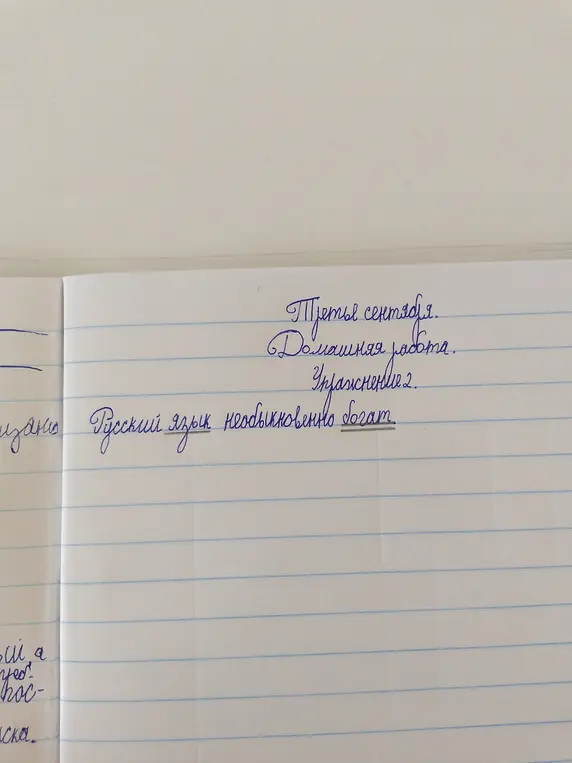 Третье сентября.
Домашняя работа.
Упражнение 2.
Русский язык необыкновенно богат.
ый а
пос-
ска.